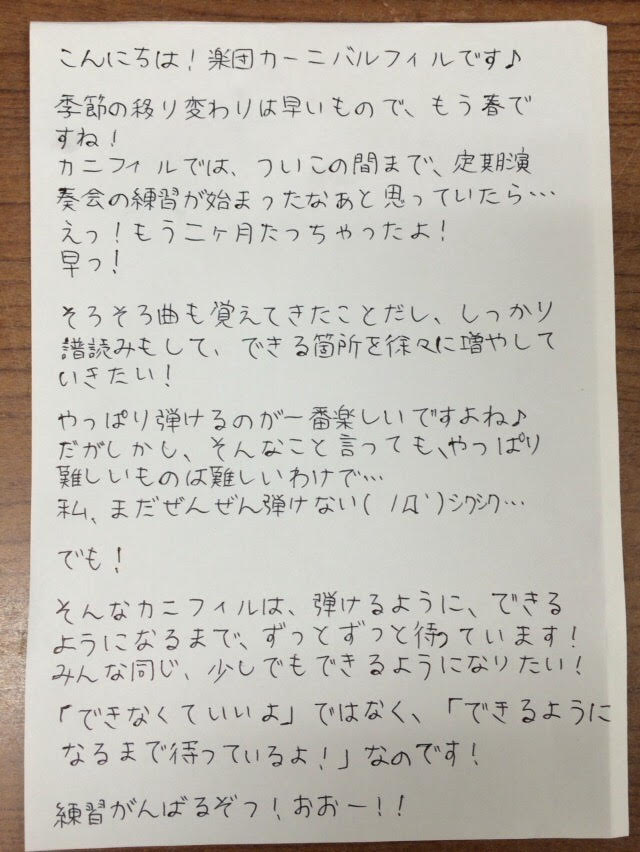 こんにちは！楽団カーニバルフィルです♪
季節の移り変わりは早いもので、もう春で
すね！
カニフィルでは、ついこの間まで、定期演
奏会の練習が始まったなぁと思っていたら…
えっ！もう二ヶ月たっちゃったよ！
早っ！
そろそろ曲も覚えてきたことだし、しっかり
譜読みもして、できる箇所を徐々に増やして
いきたい！
やっぱり弾けるのが一番楽しいですよね♪
だがしかし、そんなこと言っても、やっぱり
難しいものは難しいわけで…
私、まだぜんぜん弾けない( ﾉД`)ｼｸｼｸ…
でも！
そんなカニフィルは、弾けるように、できる
ようになるまで、ずっとずっと待っています！
みんな同じ、少しでもできるようになりたい！
「できなくていいよ」ではなく、「できるように
なるまで待っているよ！」なのです！
練習がんばるぞっ！おおー！！